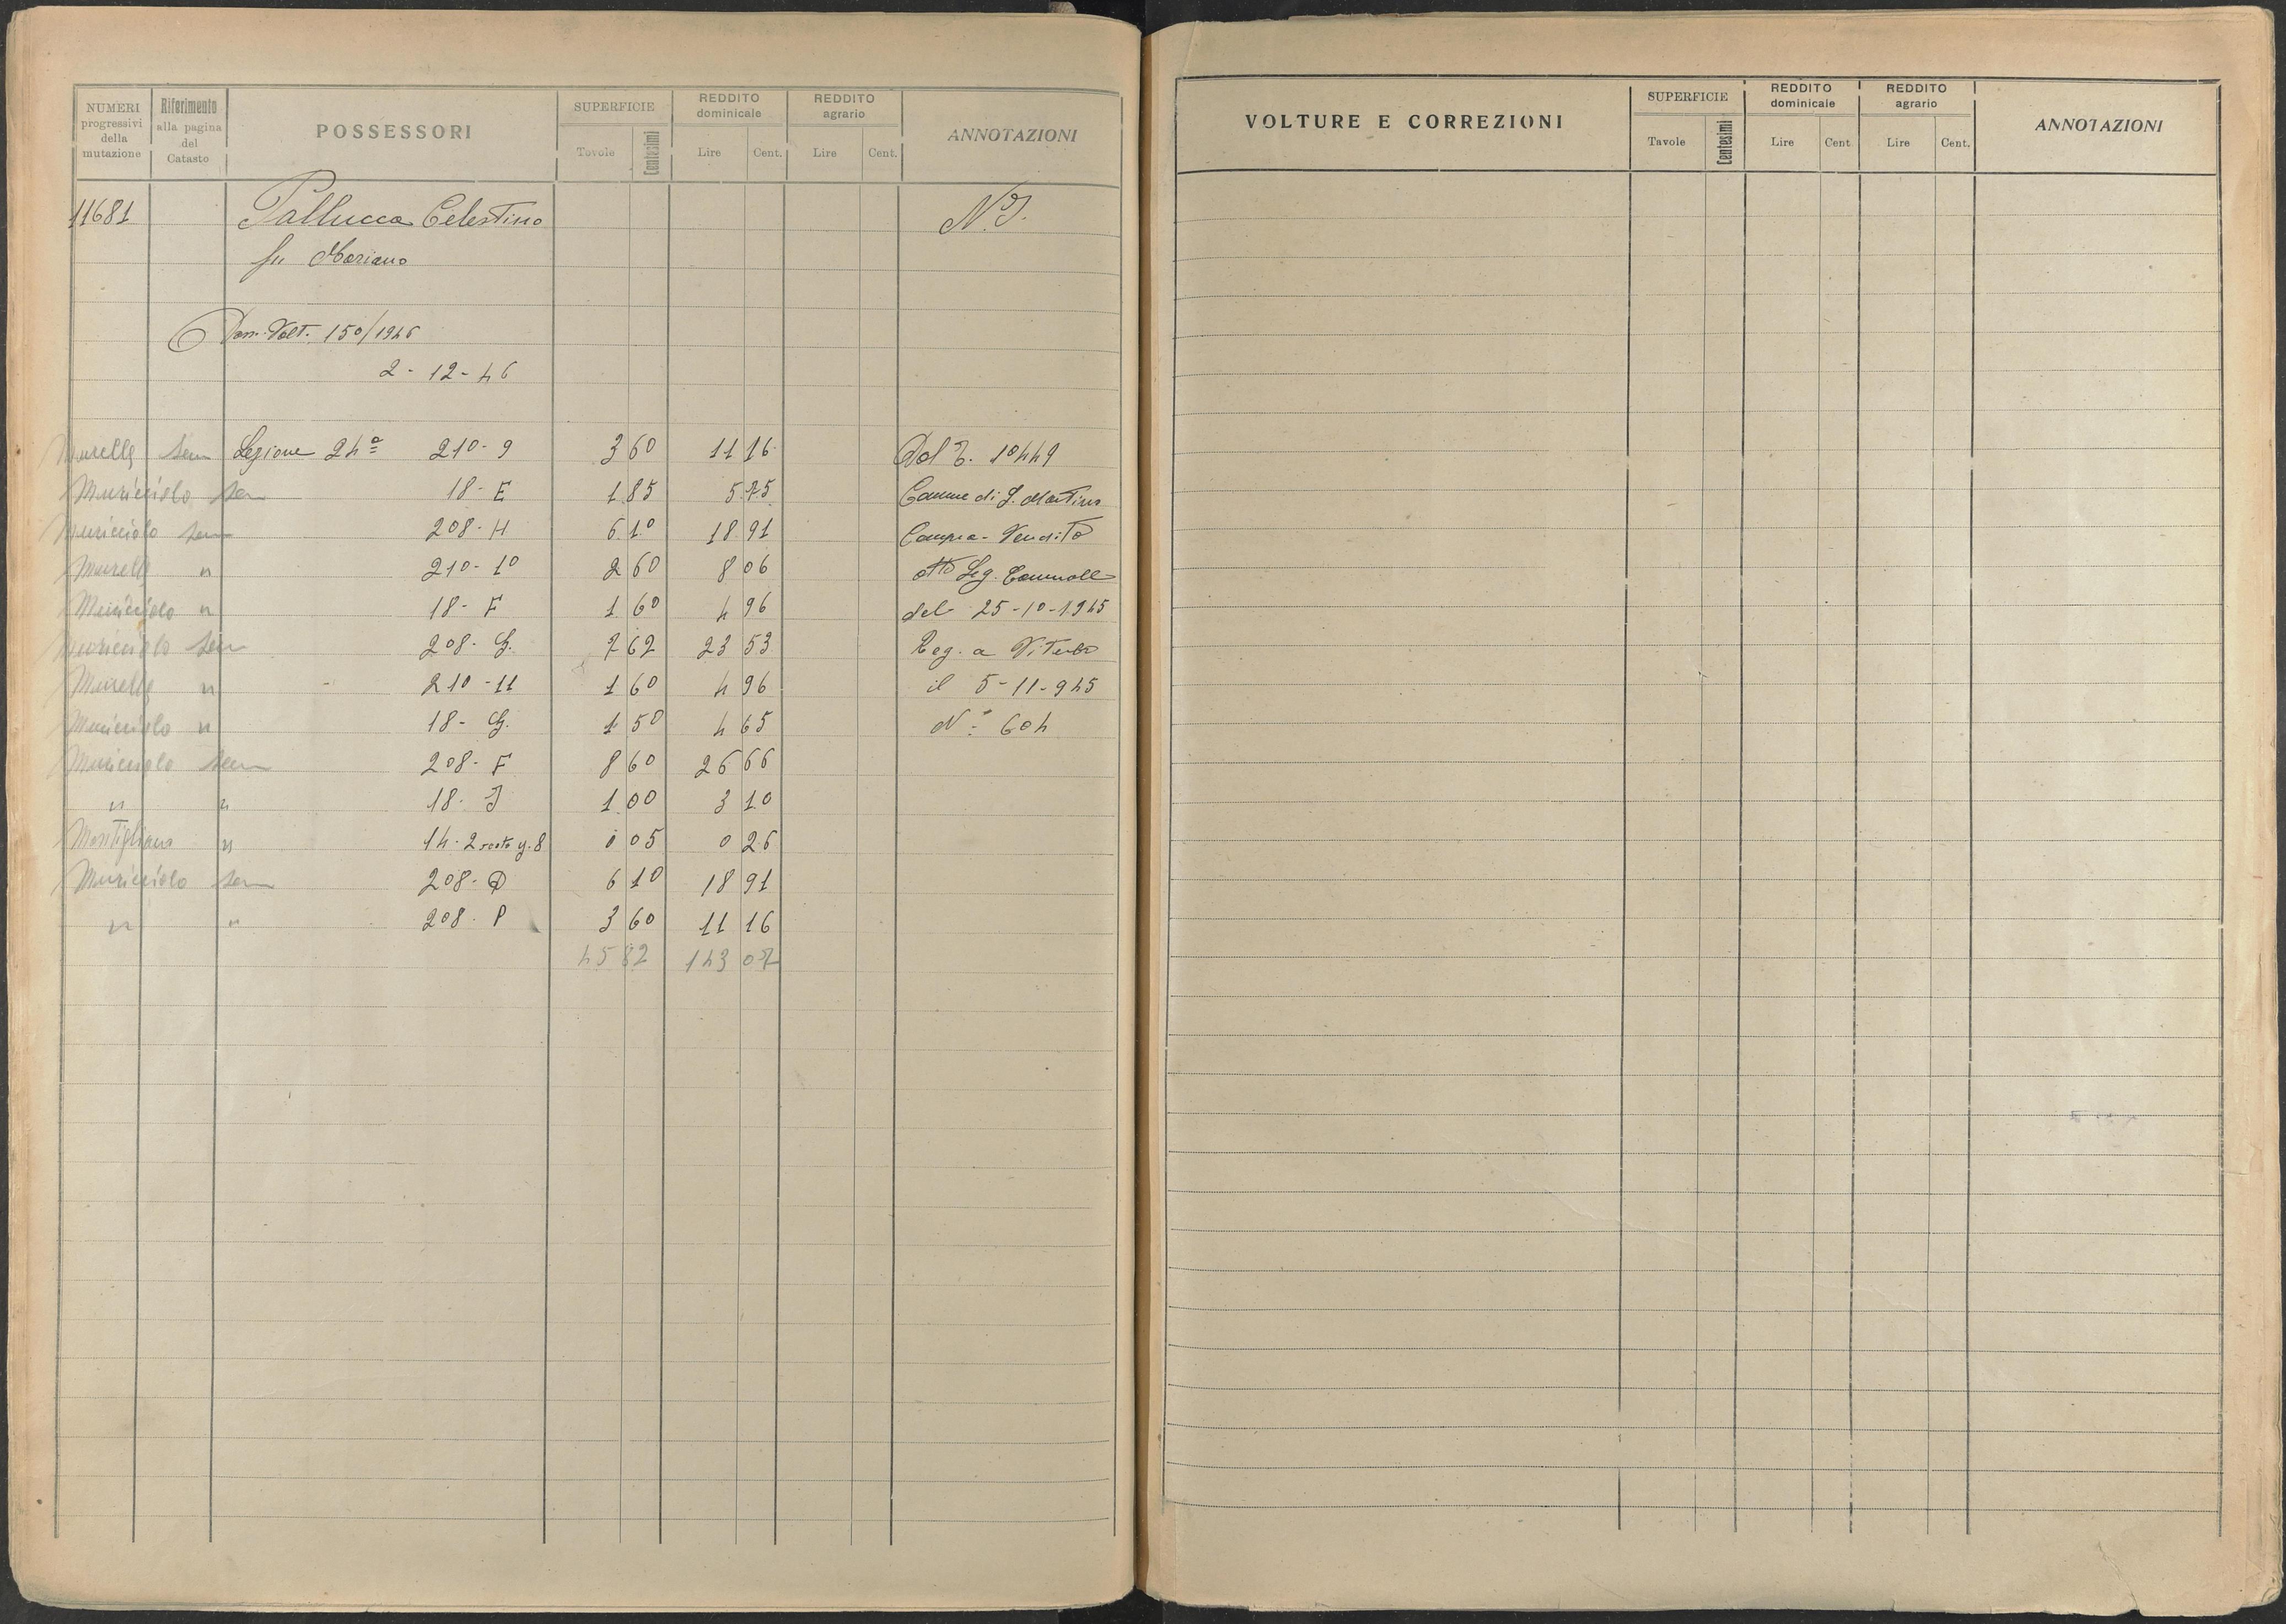 NUMERI progressivi della mutazione | Riferimento alla pagina del Catasto | POSSESSORI | SUPERFICIE Tavole Centesimi | REDDITO dominicale Lire Cent. | REDDITO agrario Lire Cent. | ANNOTAZIONI
11681 Pallucca Celestino N.I.
fu Mariano
Dom. Volt. 150/1946
2-12-46
Murelle sem Sezione 24ª 210-9 3 60 11 16 Dal P. 10449
Muricciolo sem 18-E 1 85 5 75 Comune di S. Martino
Muricciolo sem 208-H 6 10 18 91 Compra-Vendita
Murelle " 210-10 2 60 8 06 atto Seg. Comunale
Muricciolo " 18-F 1 60 4 96 del 25-10-1945
Muricciolo sem 208-G. 7 62 23 53 Reg. a Viterbo
Murelle " 210-11 1 60 4 96 il 5-11-945
Muricciolo " 18-G. 1 50 4 65 N° 604
Muricciolo sem 208-F 8 60 26 66
" " 18-I 1 00 3 10
Montigliano " 14-2 y.8 0 05 0 26
Muricciolo sem 208-Q 6 10 18 91
" " 208-P 3 60 11 16
45 82 143 07
VOLTURE E CORREZIONI | SUPERFICIE Tavole Centesimi | REDDITO dominicale Lire Cent | REDDITO agrario Lire Cent. | ANNOTAZIONI